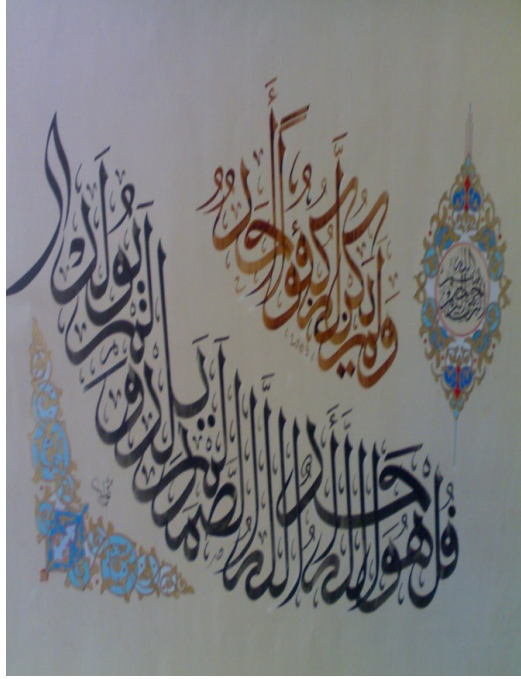 بسم الله الرحمن الرحيم
قُلْ هُوَ اللَّهُ أَحَدٌ اللَّهُ الصَّمَدُ لَمْ يَلِدْ وَلَمْ يُولَدْ
وَلَمْ يَكُنْ لَهُ كُفُوًا أَحَدٌ